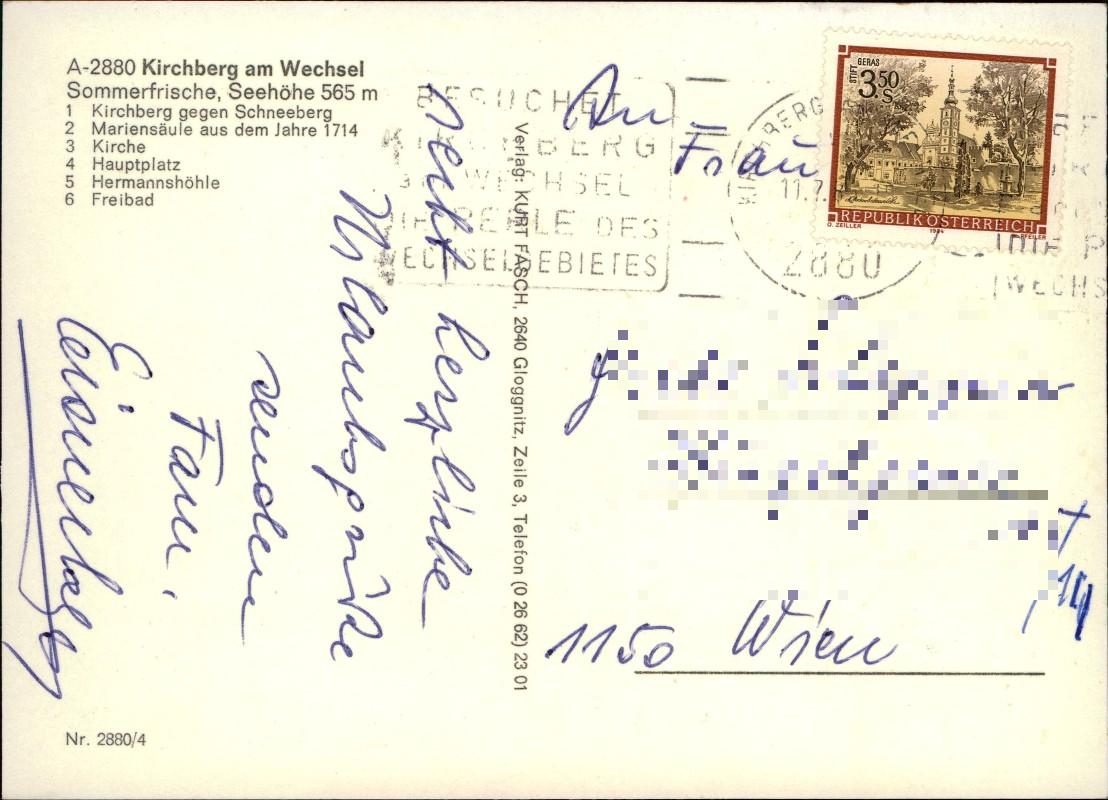 A-2880 Kirchberg am Wechsel
Sommerfrische, Seehöhe 565 m
1 Kirchberg gegen Schneeberg
2 Mariensäule aus dem Jahre 1714
3 Kirche
4 Hauptplatz
5 Hermannshöhle
6 Freibad
BESUCHET
KIRCHBERG
WECHSEL
DIE PERLE DES
WECHSELGEBIETES
2880
STIFT GERAS
3.50 S
REPUBLIK ÖSTERREICH
O. ZEILLER
1984
PFEILER
Recht herzliche
Urlaubsgrüße
senden
Fam.
Verlag: KURT FASCH, 2640 Gloggnitz, Zeile 3, Telefon (0 26 62) 23 01
An
Frau
1150 Wien
Nr. 2880/4